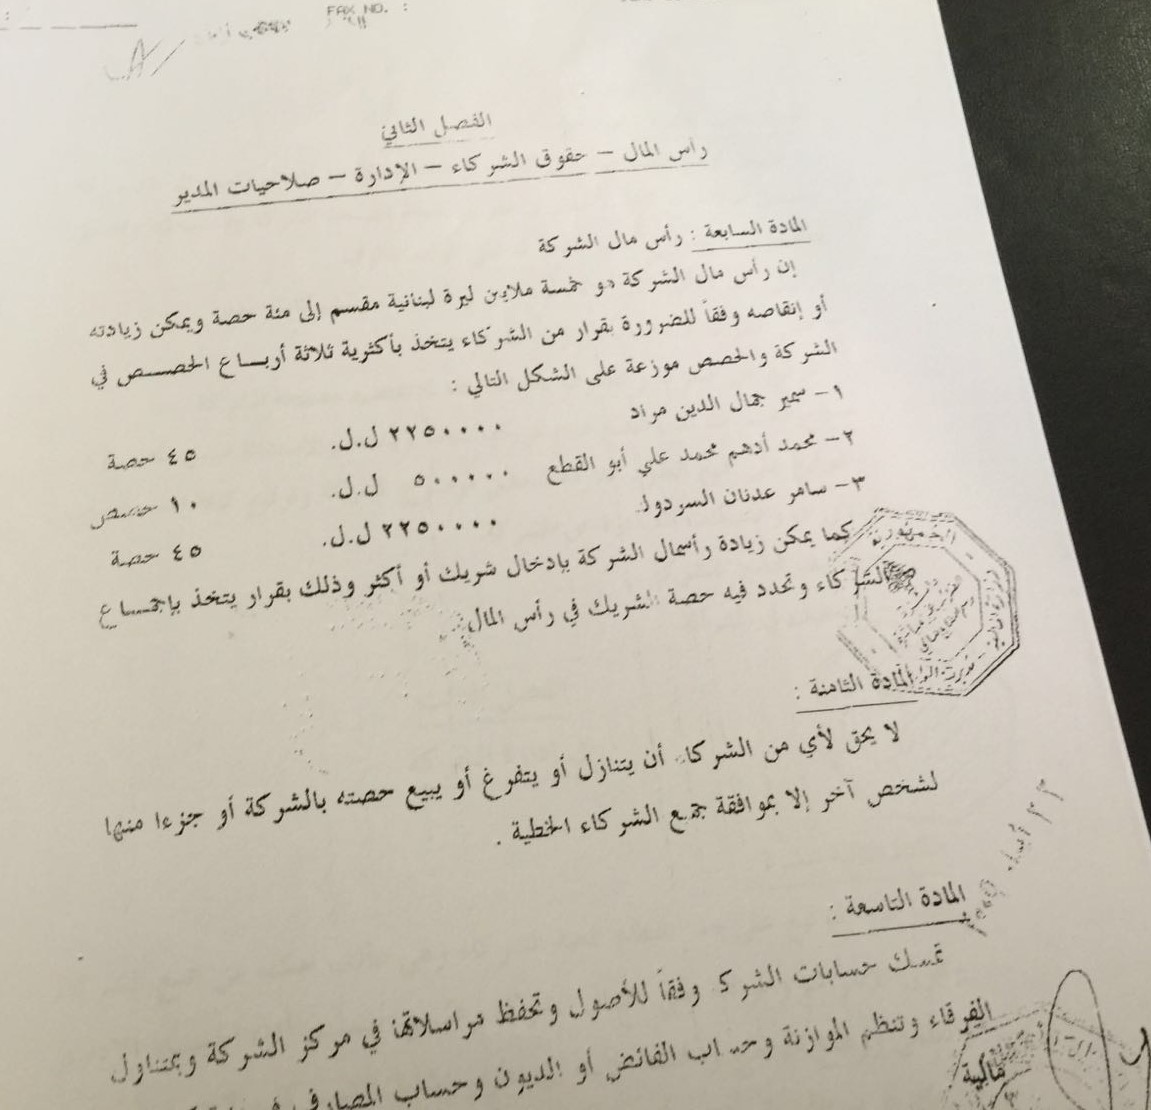 FAX NO. :
الفصل الثاني
رأس المال - حقوق الشركاء - الإدارة - صلاحيات المدير
المادة السابعة : رأس مال الشركة
إن رأس مال الشركة هو خمسة ملايين ليرة لبنانية مقسم إلى مئة حصة ويمكن زيادته
أو إنقاصه وفقاً للضرورة بقرار من الشركاء يتخذ بأكثرية ثلاثة أربـــاع الحصـــص في
الشركة والحصص موزعة على الشكل التالي :
١- سمير جمال الدين مراد ٢٢٥٠٠٠٠ ل.ل. ٤٥ حصة
٢- محمد أدهم محمد علي أبو القطع ٥٠٠٠٠٠ ل.ل. ١٠ حصص
٣- سامر عدنان ٢٢٥٠٠٠٠ ل.ل. ٤٥ حصة
كما يمكن زيادة رأسمال الشركة بإدخال شريك أو أكثر وذلك بقرار يتخذ بإجمـــاع
الشركاء وتحدد فيه حصة الشريك في رأس المال
المادة الثامنة :
لا يحق لأي من الشركاء أن يتنازل أو يتفرغ أو يبيع حصته بالشركة أو جزءا منها
لشخص آخر إلا بموافقة جميع الشركاء الخطية .
المادة التاسعة :
تمسك حسابات الشركة وفقاً للأصول وتحفظ مراسلاتها في مركز الشركة وبمتناول
الفرقاء وتنظم الموازنة وحساب الفائض أو الديون وحساب المصارف
مالية